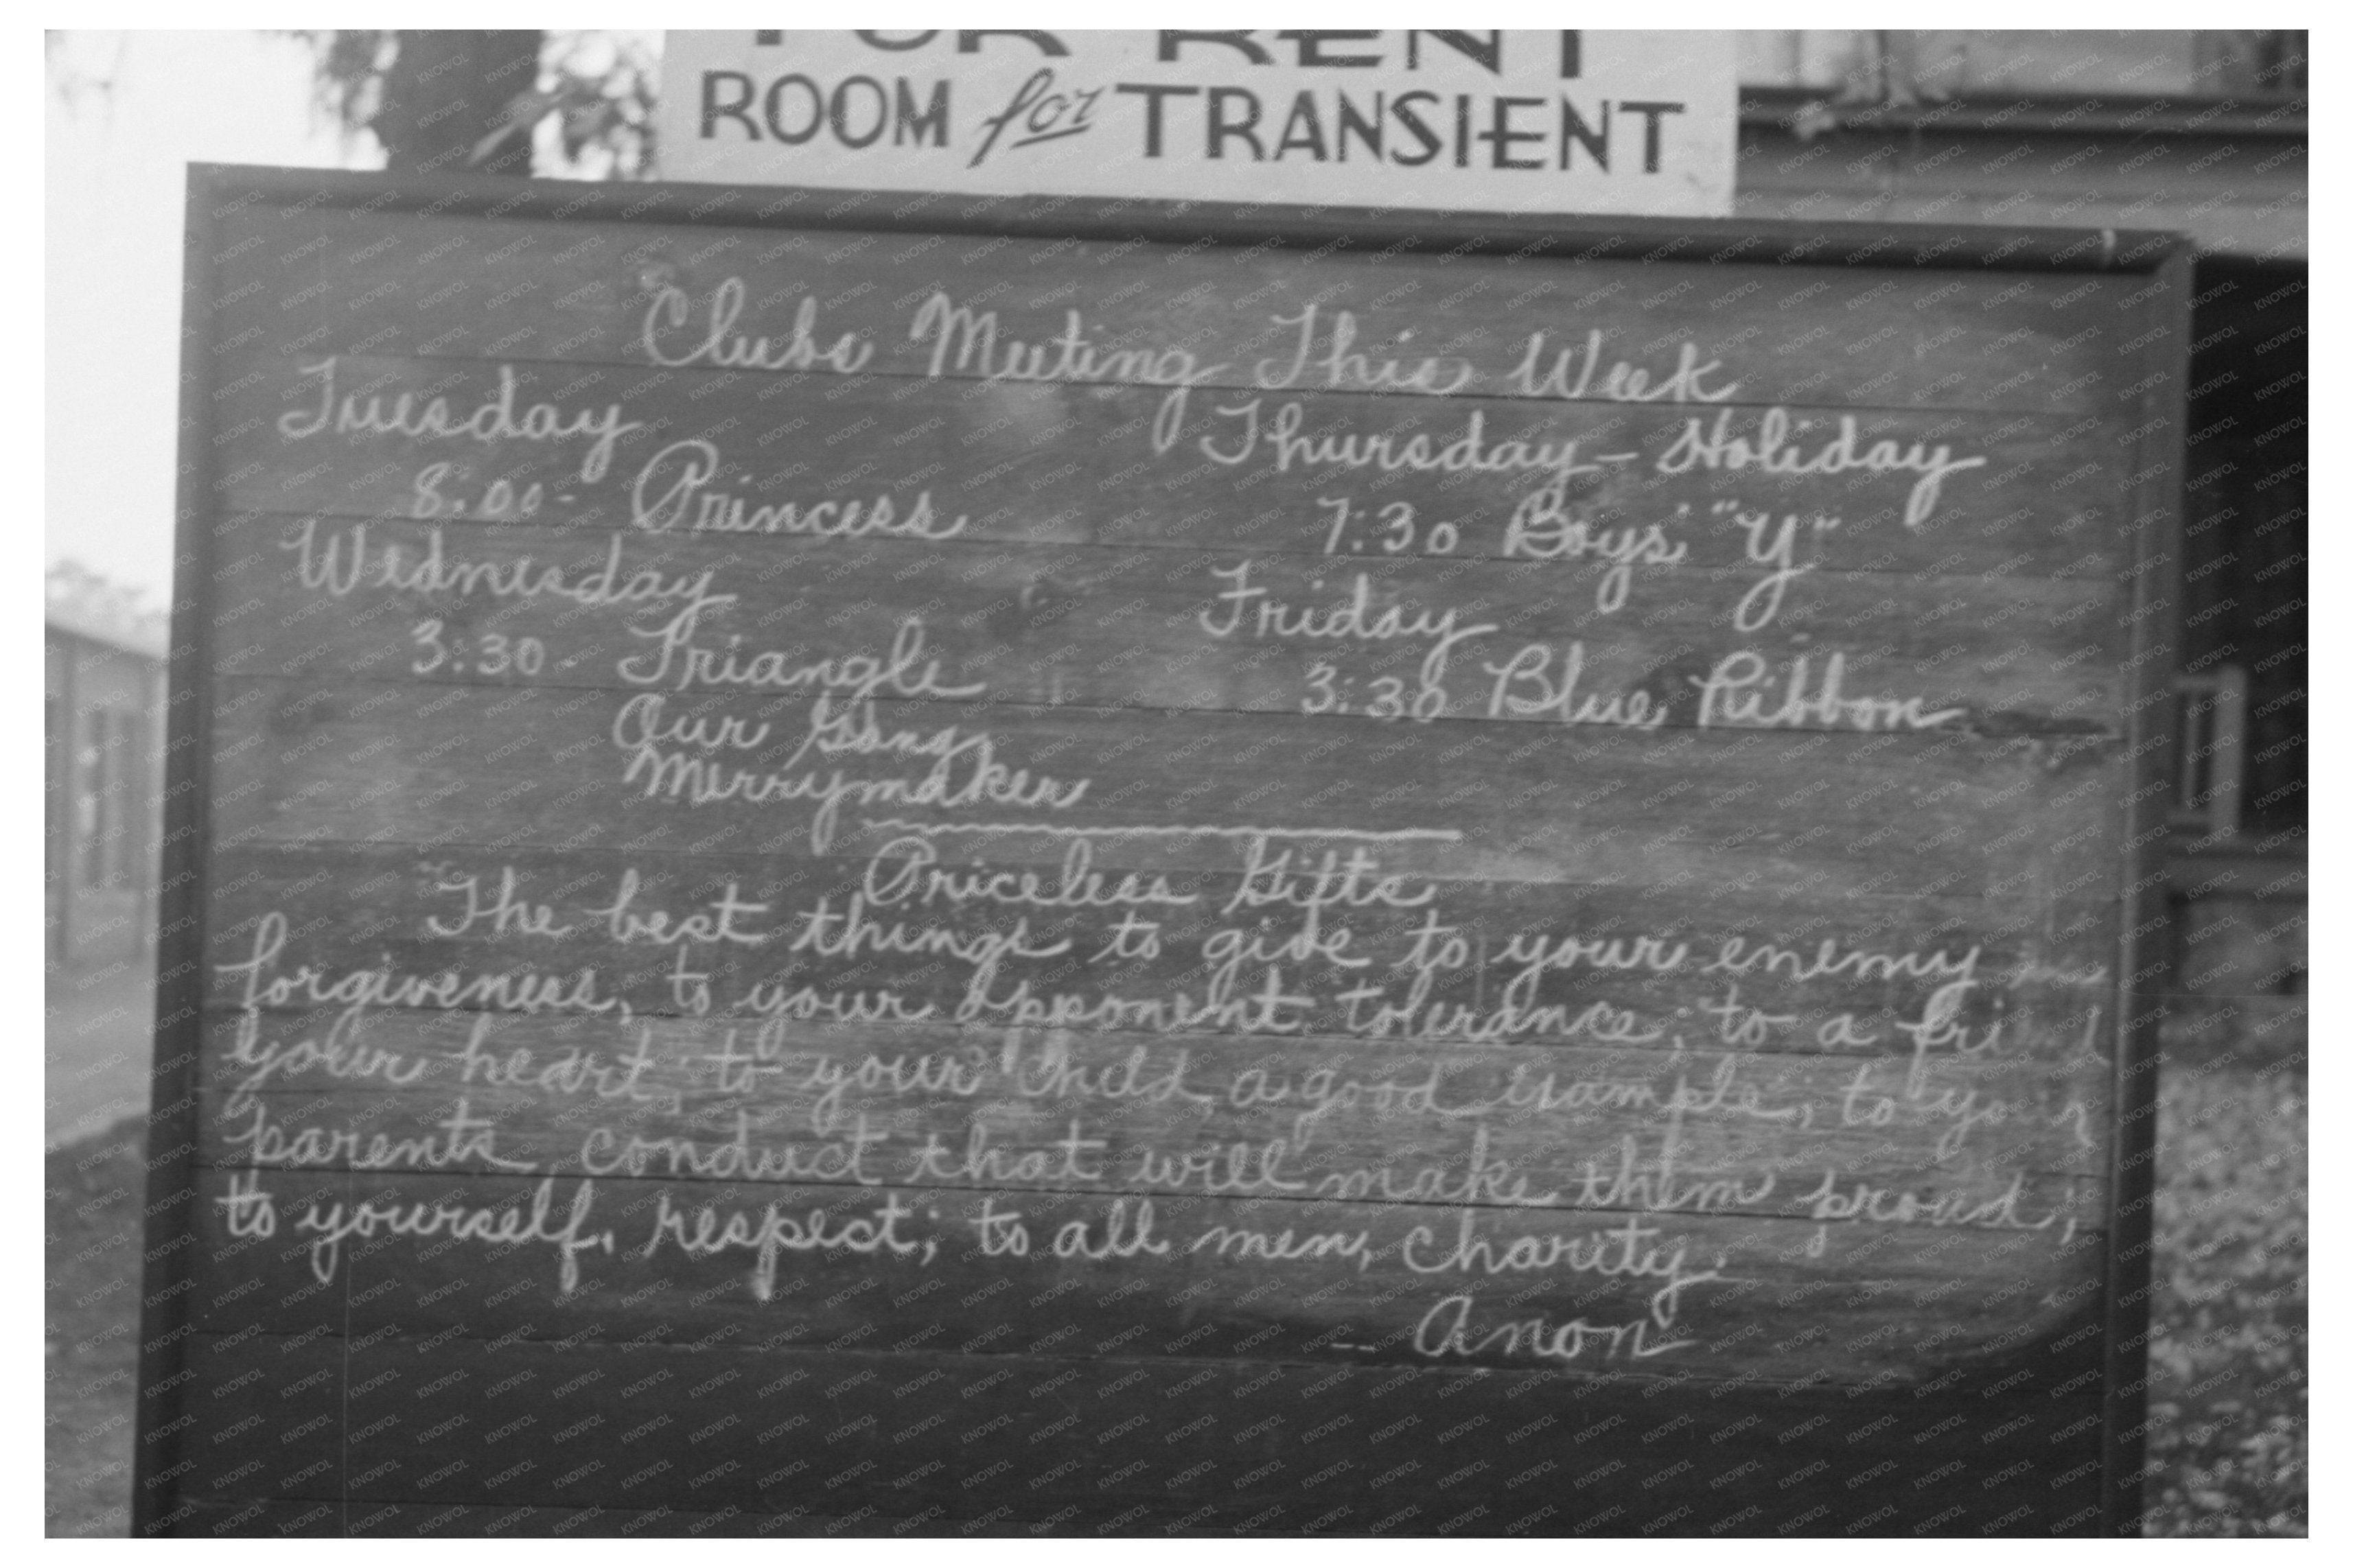 FOR RENT
ROOM for TRANSIENT
Clubs Meeting This Week
Tuesday
8:00- Princess
Wednesday
3:30- Triangle
Our Gang
Merrymaker
Thursday - Holiday
7:30 Boys' "Y"
Friday
3:30 Blue Ribbon
Priceless Gifts
The best things to give to your enemy
forgiveness, to your opponent tolerance; to a
your heart; to your child, a good example; to
parents, conduct that will make them proud;
to yourself, respect; to all men, charity.
-- Anon
KNOWOL